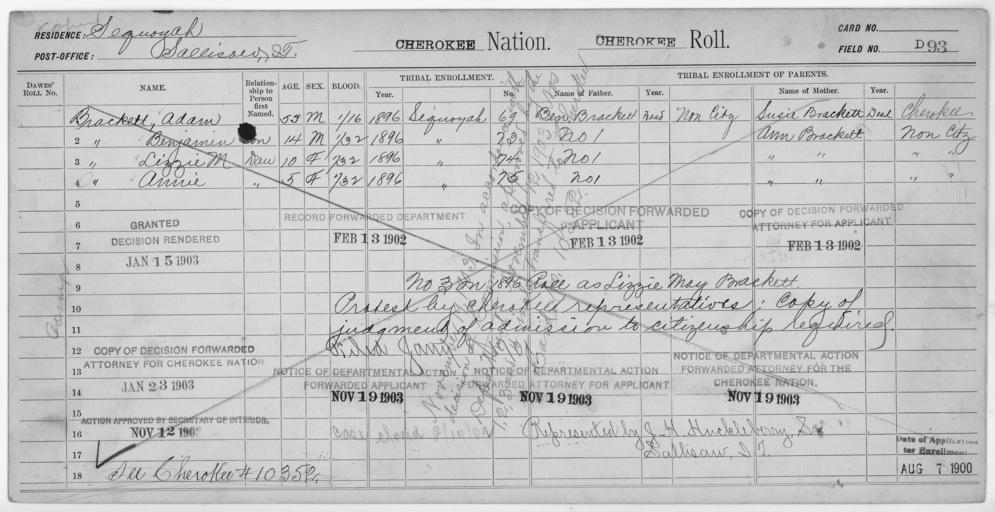 RESIDENCE: Sequoyah
POST-OFFICE: Sallisaw, I.T.
CHEROKEE Nation. CHEROKEE Roll.
CARD NO.
FIELD NO. D93
DAWES' ROLL NO. NAME. Relationship to Person first Named. AGE. SEX. BLOOD. TRIBAL ENROLLMENT. Year. No. TRIBAL ENROLLMENT OF PARENTS. Name of Father. Year. Name of Mother. Year.
Brackett, Adam 55 M 1/16 1896 Sequoyah 69 Ben Brackett Dead Non Citz Susie Brackett Dead Cherokee
2 " Benjamin Son 14 M 1/32 1896 " 73 No 1 Ann Brackett Non Citz
3 " Lizzie M Dau 10 F 1/32 1896 " 74 No 1 " " " "
4 " Annie " 5 F 1/32 1896 " 75 No 1 " " " "
5
6 GRANTED
7 DECISION RENDERED
8 JAN 15 1903
RECORD FORWARDED DEPARTMENT
FEB 13 1902
COPY OF DECISION FORWARDED
APPLICANT
FEB 13 1902
COPY OF DECISION FORWARDED
ATTORNEY FOR APPLICANT
FEB 13 1902
9 No 3 on 1896 Roll as Lizzie May Brackett.
10 Protest by Cherokee representatives; Copy of
11 judgment of admission to citizenship required.
12
13
14
COPY OF DECISION FORWARDED
ATTORNEY FOR CHEROKEE NATION
JAN 23 1903
NOTICE OF DEPARTMENTAL ACTION
FORWARDED APPLICANT
NOV 19 1903
NOTICE OF DEPARTMENTAL ACTION
FORWARDED ATTORNEY FOR APPLICANT
NOV 19 1903
NOTICE OF DEPARTMENTAL ACTION
FORWARDED ATTORNEY FOR THE
CHEROKEE NATION.
NOV 19 1903
15 ACTION APPROVED BY SECRETARY OF INTERIOR.
16 NOV 12 190
Represented by J. H. Huckleberry, Sr
17 Sallisaw, I. T.
18 See Cherokee #10352.
Date of Application
for Enrollment.
AUG 7 1900